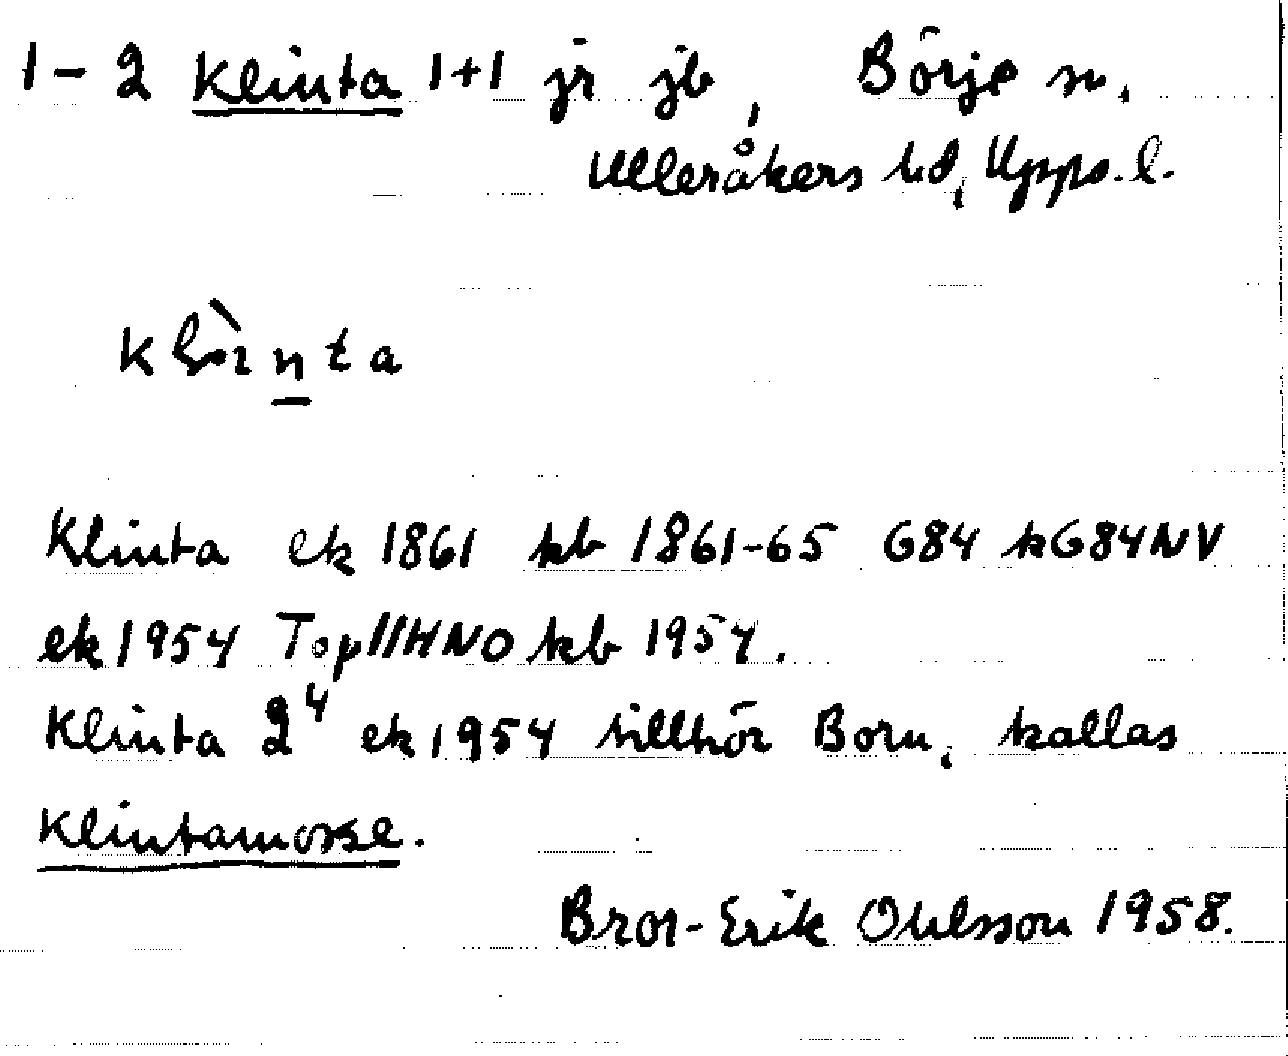 1-2 Klinta 1+1 jr jb, Börje sn,
Ulleråkers hd, Upps. l.
Klinta ek 1861 kb 1861-65 G84 kG84NV
ek 1954 Top11HNO kb 1954.
Klinta 2⁴ ek 1954 tillhör Born, kallas
Klintamosse.
Bror-Erik Ohlsson 1958.